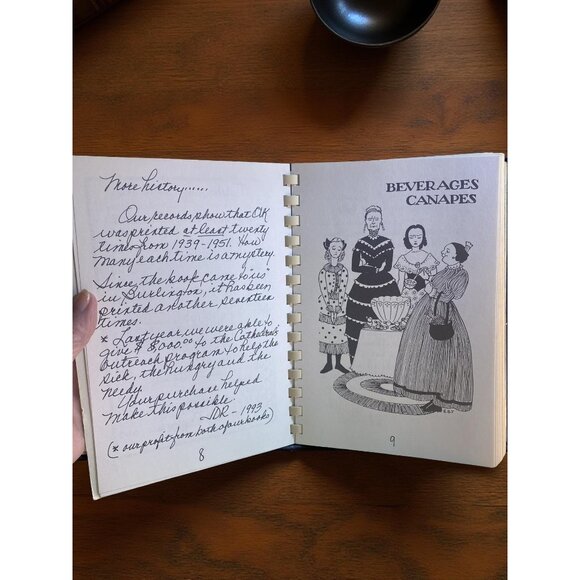 More history......
Our records show that CIK
was printed at least twenty
times from 1939-1951. How
many each time is a mystery.
Since the book came to "us"
in Burlington, it has been
printed another seventeen
times.
* Last year we were able to
give $8,000.00 to the Cathedral's
outreach program to help the
sick, the hungry and the
needy.
Your purchase helped
make this possible.
JDR - 1993
(* our profit from both of our books)
8
BEVERAGES
CANAPES
9